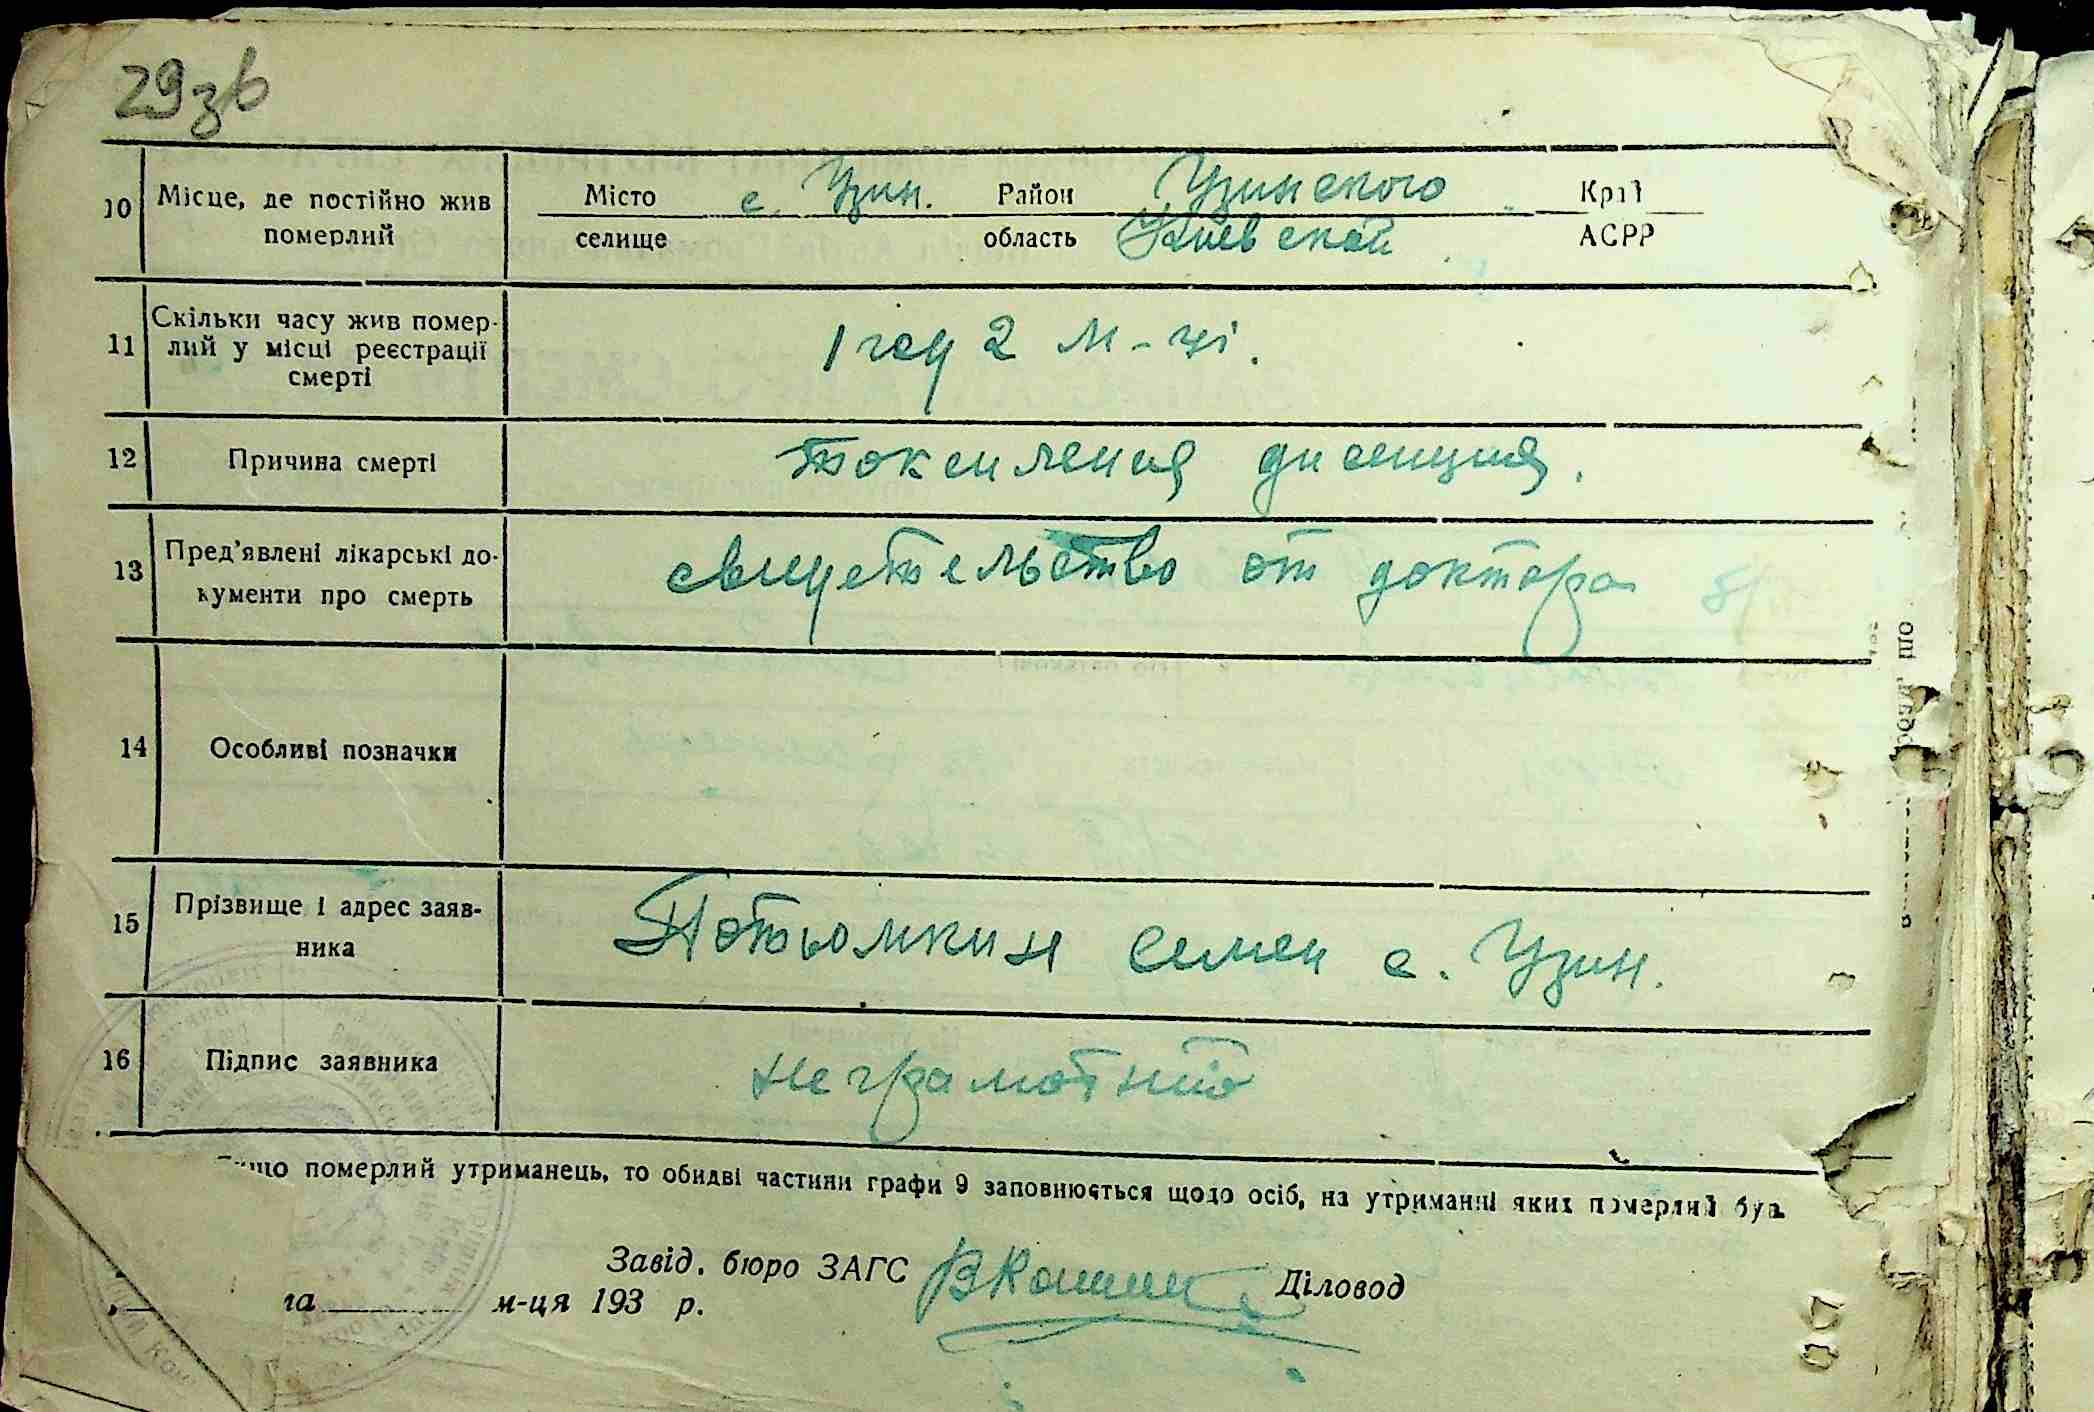 29зв
10 Місце, де постійно жив померлий
Місто с. Узин. Район Узинского Край
селище область Киевской АСРР
11 Скільки часу жив помер-
лий у місці реєстрації
смерті
1 год 2 м-ці.
12 Причина смерті
13 Пред'явлені лікарські до-
кументи про смерть
свидетельство от доктора
14 Особливі позначки
15 Прізвище і адрес заяв-
ника
Потьомкин Семен с. Узин.
16 Підпис заявника
неграмотній
Якщо померлий утриманець, то обидві частини графи 9 заповнюється щодо осіб, на утриманні яких померлий був.
Завід. бюро ЗАГС Діловод
га м-ця 193 р.